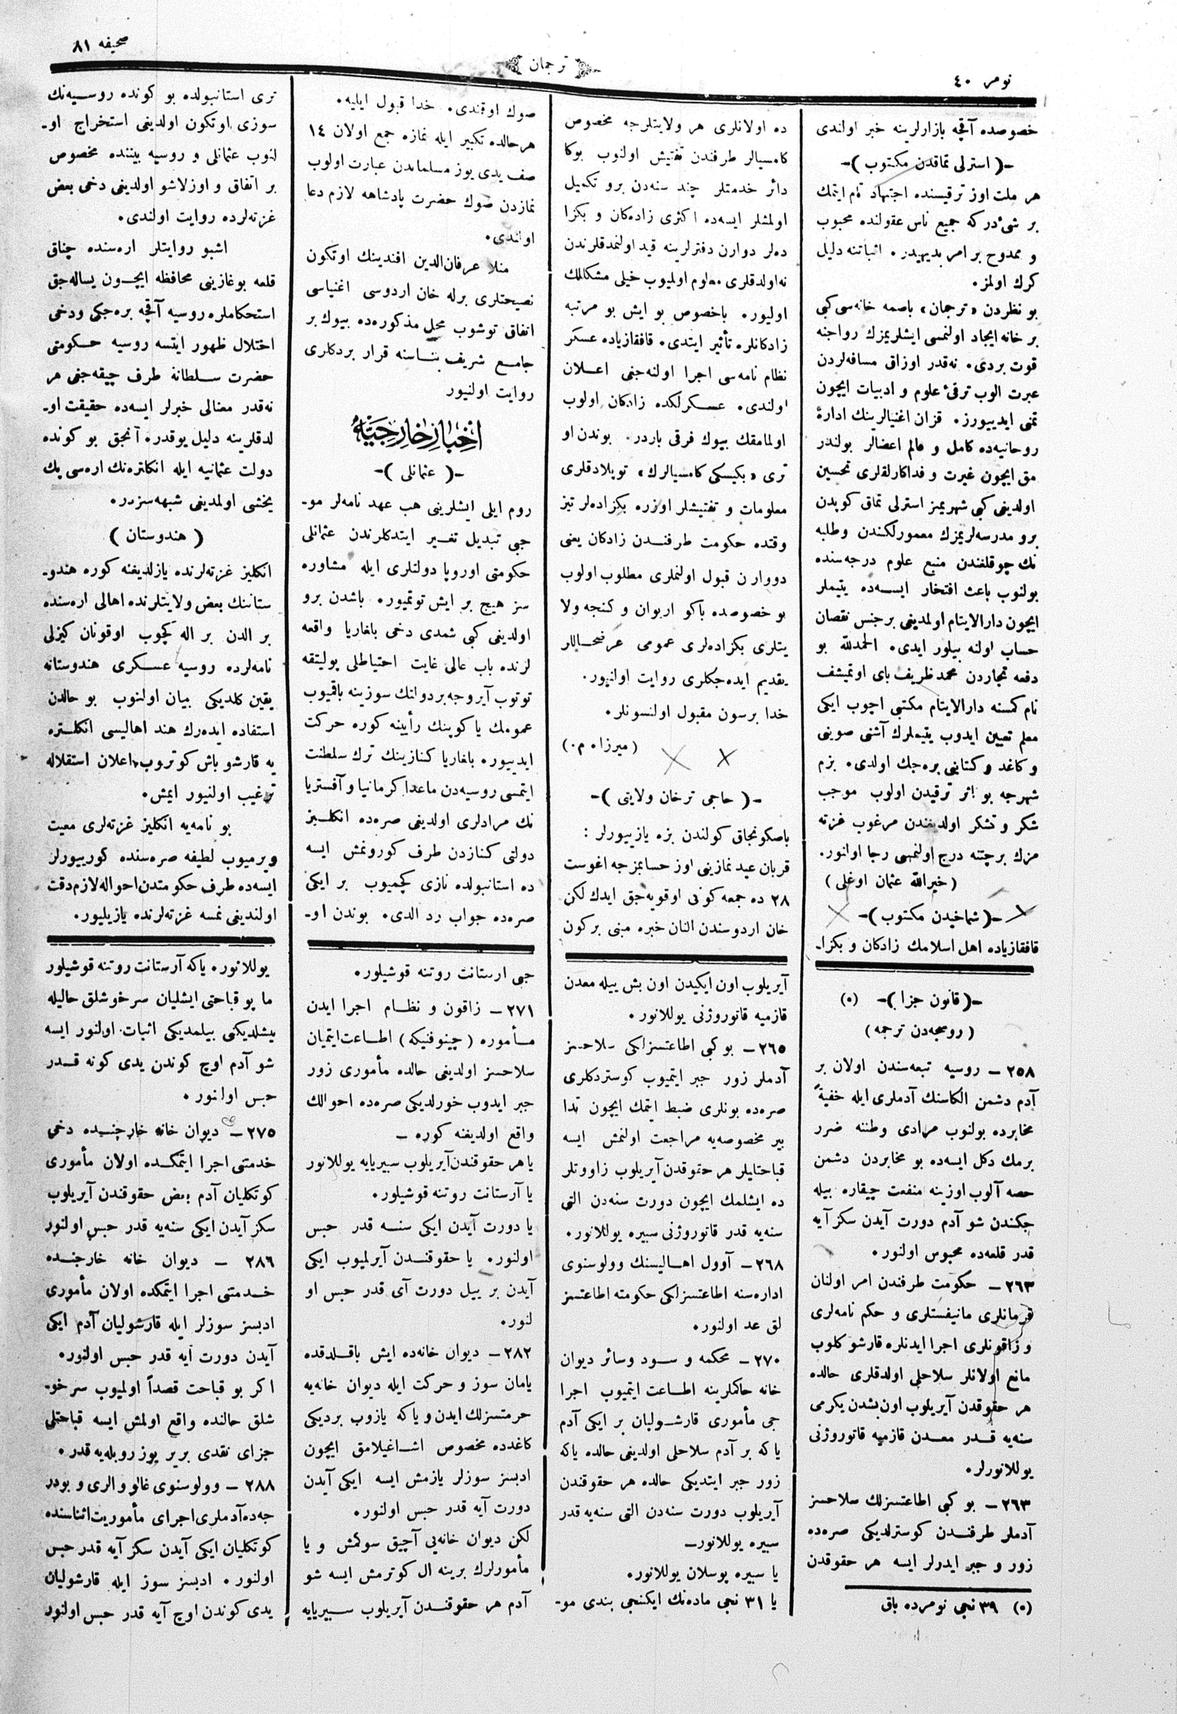 نومر ٤٠
ترجمان
صحیفه ٨١
خصوصده آقچه بازارلرینه خبر اولندی
–( استرلی تماقدن مکتوب )–
هر ملت اوز ترقیسنده اجتهاد تام ایتمك
بر شیٔ درکه جمیع ناس عقولنده محبوب
و ممدوح بر امر بدیهیدر. اثباتنه دلیل
کرك اولمز.
بو نظردن «ترجمان» باصمه خانه‌سی کبی
بر خانه ایجاد اولنمسی ایشلریمزك رواجنه
قوت بردی. نه‌قدر اوزاق مسافه‌لردن
عبرت الوب ترقیٔ علوم و ادبیات ایچون
تمنی ایدییورز. قزان اغنیالرینك ادارهٔ
روحانیه‌ده کامل و عالم اعضالر بولندر
مق ایچون غیرت و فداکارلقلری تحسین
اولدیغی کبی شهریمز استرلی تماق کوپدن
برو مدرسه‌لریمزك معمورلکندن وطلبه
نك چوقلغندن منبع علوم درجه‌سنده
بولنوب باعث افتخار ایسه‌ده یتیملر
ایچون دارالایتام اولمدیغی برجنس نقصان
حساب اولنه بیلور ایدی. الحمدلله بو
دفعه تجاردن محمد ظریف بای اوتمیشف
نام کمسنه دارالایتام مکتبی اچوب ایکی
معلم تعیین ایدوب یتیملرك آشنی صوینی
و کاغد و کتابنی بره‌جك اولدی. بزم
شهرجه بو اثر ترقیدن اولوب موجب
شکر و تشکر اولدیغندن مرغوب غزته
مزك برچتنه درج اولنمسی رجا اولنور.
(خیرالله عثمان اوغلی)
–( شماخیدن مکتوب )–
قافقازیاده اهل اسلامك زادکان و بکزا-
ده اولانلری هر ولایتلرجه مخصوص
کامسیالر طرفندن تفتیش اولنوب بوکا
دائر خدمتلر چند سنه‌دن برو تکمیل
اولمشلر ایسه‌ده اکثری زادکان و بکزا
ده‌لر دوارن دفترلرینه قید اولنمدقلرندن
نه اولدقلری معلوم اولمیوب خیلی مشکللك
اولیور. باخصوص بو ایش بو مرتبه
زادکانلره تأثیر ایتدی. قافقازیاده عسکر
نظام نامه‌سی اجرا اولنه‌جغی اعلان
اولندی. عسکرلکده زادکان اولوب
اولمامقك بیوك فرقی باردر. بوندن او
تری «بکیسکی کامسیالرك» توپلادقلری
معلومات و تفتیشلر اوزره بکزاده‌لر تیز
وقتده حکومت طرفندن زادکان یعنی
دووارن قبول اولنملری مطلوب اولوب
بو خصوصده باکو اریوان و کنجه ولا
یتلری بکزاده‌لری عمومی عرضحاللر
تقدیم ایده‌جکلری روایت اولنیور.
خدا برسون مقبول اولنسونلر.
(میرزاه م.)
–( حاجی ترخان ولایتی )–
باصکونجاق کولندن بزه یازییورلر :
قربان عید نمازینی اوز حسابمزجه اغوست
٢٨ ده جمعه کونی اوقویه‌جق ایدك لکن
خان اردوسندن النان خبره مبنی برکون
صوك اوقندی. خدا قبول ایلیه.
هرحالده تکبیر ایله نمازه جمع اولان ١٤
صف یدی یوز مسلماندن عبارت اولوب
نمازدن صوك حضرت پادشاهه لازم دعا
اولندی.
منلا عرفان‌الدین افندینك اوتکون
نصیحتلری برله خان اردوسی اغنیاسی
اتفاق توشوب محل مذکوره‌ده بیوك بر
جامع شریف بناسنه قرار بردکلری
روایت اولنیور
اخبار خارجیه
–( عثمانلی )–
روم ایلی ایشلرینی هپ عهد نامه‌لر مو-
جبی تبدیل تغییر ایتدکلرندن عثمانلی
حکومتی اوروپا دولتلری ایله مشاوره
سز هیچ بر ایش توتمیور. باشدن برو
اولدیغی کبی شمدی دخی بلغاریا واقعه
لرنده باب عالی غایت احتیاطلی پولیتقه
توتوب آیروجه بردوانك سوزینه باقمیوب
عمومك یاکوپنك رأیینه کوره حرکت
ایدییور. بلغاریا کنازینك ترك سلطنت
ایتمسی روسیه‌دن ماعدا کرمانیا و آفستریا
نك مرادلری اولدیغی صره‌ده انکلیز
دولتی کنازدن طرف کورونمش ایسه
ده استانبولده نازی کچمیوب بر ایکی
صره‌ده جواب رد الدی. بوندن او-
تری استانبولده بو کونده روسیه‌نك
سوزی اوتکون اولدیغی استخراج او-
لنوب عثمانلی و روسیه بیننده مخصوص
بر اتفاق و اوزلاشو اولدیغی دخی بعض
غزته‌لرده روایت اولندی.
اشبو روایتلر اره‌سنده چناق
قلعه بوغازینی محافظه ایچون یساله‌جق
استحکاملره روسیه آقچه بره‌جکی ودخی
اختلال ظهور ایتسه روسیه حکومتی
حضرت سلطانه طرف چیقه‌جغی هر
نه‌قدر معنالی خبرلر ایسه‌ده حقیقت او-
لدقلرینه دلیل یوقدر. آنجق بو کونده
دولت عثمانیه ایله انکلتره‌نك اره‌سی پك
یخشی اولمدیغی شبهه‌سزدر.
( هندوستان )
انکلیز غزته‌لرنده یازلدیغنه کوره هندو-
ستاننك بعض ولایتلرنده اهالی اره‌سنده
بر الدن بر اله کچوب اوقونان کیزلی
نامه‌لرده روسیه عسکری هندوستانه
یقین کلدیکی بیان اولنوب بو حالدن
استفاده ایده‌رك هند اهالیسی انکلتره
یه قارشو باش کوتروب اعلان استقلاله
ترغیب اولنیور ایمش.
بو نامه‌یه انکلیز غزته‌لری معیت
ویرمیوب لطیفه صره‌سنده کورییورلر
ایسه‌ده طرف حکومتدن احواله لازم دقت
اولندیغی نمسه غزته‌لرنده یازیلیور.
–( قانون جزا )– (٥)
( روسجه‌دن ترجمه )
٢٥٨ – روسیه تبعه‌سندن اولان بر
آدم دشمن الکاسنك آدملری ایله خفیةً
مخابره‌ده بولنوب مرادی وطننه ضرر
برمك دکل ایسه‌ده بو مخابردن دشمن
حصه آلوب اوزینه منفعت چیقاره بیله
جکندن شو آدم دورت آیدن سکز آیه
قدر قلعه‌ده محبوس اولنور.
٢٦٣ – حکومت طرفندن امر اولنان
فرمانلری مانیفستلری و حکم نامه‌لری
و زاقونلری اجرا ایدنلره قارشو کلوب
مانع اولانلر سلاحلی اولدقلری حالده
هر حقوقدن آیریلوب اون‌بشدن یکرمی
سنه‌یه قدر معدن قازمیه قاتوروژنی
یوللانورلر.
٢٦٣ – بو کبی اطاعتسزلك سلاحسز
آدملر طرفندن کوسترلدیکی صره‌ده
زور و جبر ایدرلر ایسه هر حقوقدن
(٥) ٣٩ نجی نومرده باق
آیریلوب اون ایکیدن اون بش ییله معدن
قازمیه قاتوروژنی یوللانور.
٢٦٥ – بو کبی اطاعتسزلکی سلاحسز
آدملر زور جبر ایتمیوب کوستردکلری
صره‌ده بونلری ضبط اتمك ایچون تدا
بیر مخصوصه‌یه مراجعت اولنمش ایسه
قباحتلیلر هر حقوقدن آیریلوب زاووتلر
ده ایشلمك ایچون دورت سنه‌دن التی
سنه‌یه قدر قاتوروژنی سبیره یوللانور.
٢٦٨ – آوول اهالیسنك وولوسنوی
اداره‌سنه اطاعتسزلکی حکومته اطاعتسز
لق عد اولنور.
٢٧٠ – محکمه و سود وسائر دیوان
خانه حکملرینه اطاعت ایتمیوب اجرا
جی مأموری قارشولیان بر ایکی آدم
یاکه بر آدم سلاحلی اولدیغی حالده یاکه
زور جبر ایتدیکی حالده هر حقوقندن
آیریلوب دورت سنه‌دن التی سنه‌یه قدر
سبیره یوللانور–
یا سبیره پوسلان یوللانور.
یا ٣١ نجی ماده‌نك ایکنجی بندی مو-
جبی ارستانت روتنه قوشیلور.
٢٧١ – زاقون و نظام اجرا ایدن
مأموره (چینوفنیکه) اطاعت ایتمیان
سلاحسز اولدیغی حالده مأموری زور
جبر ایدوب خورلدیکی صره‌ده احوالك
واقع اولدیغنه کوره –
یا هر حقوقندن آیریلوب سبیریایه یوللانور
یا آرستانت روتنه قوشیلور.
یا دورت آیدن ایکی سنه قدر حبس
اولنور. یا حقوقندن آیرلمیوب ایکی
آیدن بر ییل دورت آی قدر حبس او
لنور.
٢٨٢ – دیوان خانه‌ده ایش باقلدقده
یامان سوز و حرکت ایله دیوان خانه‌یه
حرمتسزلك ایدن و یاکه یازوب بردیکی
کاغدده مخصوص اشاغیلامق ایچون
ادبسز سوزلر یازمش ایسه ایکی آیدن
دورت آیه قدر حبس اولنور.
لکن دیوان خانه‌یی آچیق سوکمش و یا
مأمورلرك برینه ال کوترمش ایسه شو
آدم هر حقوقندن آیریلوب سبیریایه
یوللانور. یاکه آرستانت روتنه قوشیلور
ما یو قباحتی ایشلیان سرخوشلق حالیله
بیشلدیکی بیلمدیکی اثبات اولنور ایسه
شو آدم اوچ کوندن یدی کونه قدر
حبس اولنور.
٢٧٥ – دیوان خانه خارجنده دخی
خدمتی اجرا ایتمکده اولان مأموری
کوتکلیان آدم بعض حقوقندن آیریلوب
سکز آیدن ایکی سنه‌یه قدر حبس اولنور
٢٨٦ – دیوان خانه خارجنده
خدمتی اجرا ایتمکده اولان مأموری
ادبسز سوزلر ایله قارشولیان آدم ایکی
آیدن دورت آیه قدر حبس اولنور.
اکر بو قباحت قصداً اولمیوب سرخو-
شلق حالنده واقع اولمش ایسه قباحتلی
جزای نقدی بریر یوز روبله‌یه قدر.
٢٨٨ – وولوسنوی غالووالری و بودر
جه‌ده آدملری اجرای مأموریت اثناسنده
کوتکلیان ایکی آیدن سکز آیه قدر حبس
اولنور. ادبسز سوز ایله قارشولیان
یدی کوندن اوچ آیه قدر حبس اولنور